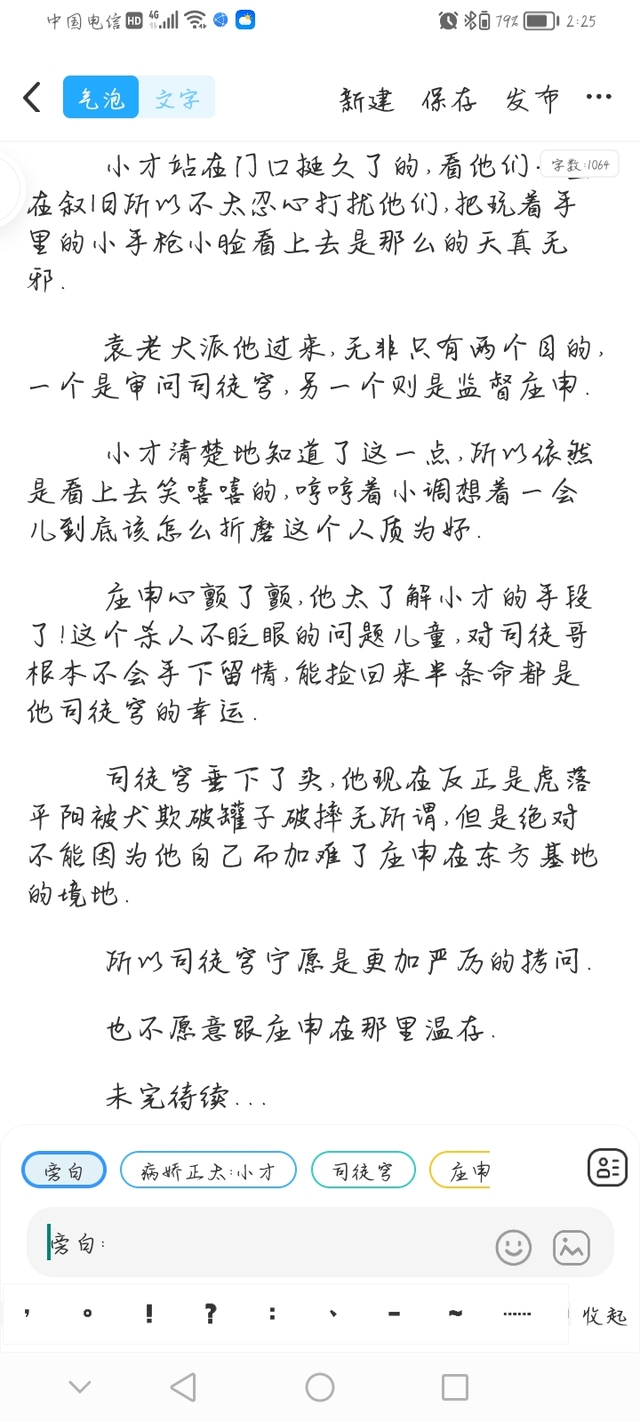 中国电信 HD 4G 79% 2:25
气泡 文字 新建 保存 发布 ···
字数:1064
小才站在门口挺久了的,看他们
在叙旧所以不太忍心打扰他们,把玩着手
里的小手枪小脸看上去是那么的天真无
邪.
袁老大派他过来,无非只有两个目的,
一个是审问司徒穹,另一个则是监督庄申.
小才清楚地知道了这一点,所以依然
是看上去笑嘻嘻的,哼哼着小调想着一会
儿到底该怎么折磨这个人质为好.
庄申心颤了颤,他太了解小才的手段
了!这个杀人不眨眼的问题儿童,对司徒哥
根本不会手下留情,能捡回来半条命都是
他司徒穹的幸运.
司徒穹垂下了头,他现在反正是虎落
平阳被犬欺破罐子破摔无所谓,但是绝对
不能因为他自己而加难了庄申在东方基地
的境地.
所以司徒穹宁愿是更加严厉的拷问.
也不愿意跟庄申在那里温存.
未完待续...
旁白 病娇正太:小才 司徒穹 庄申
旁白:
, 。 ! ? : 、 - ~ …… 收起